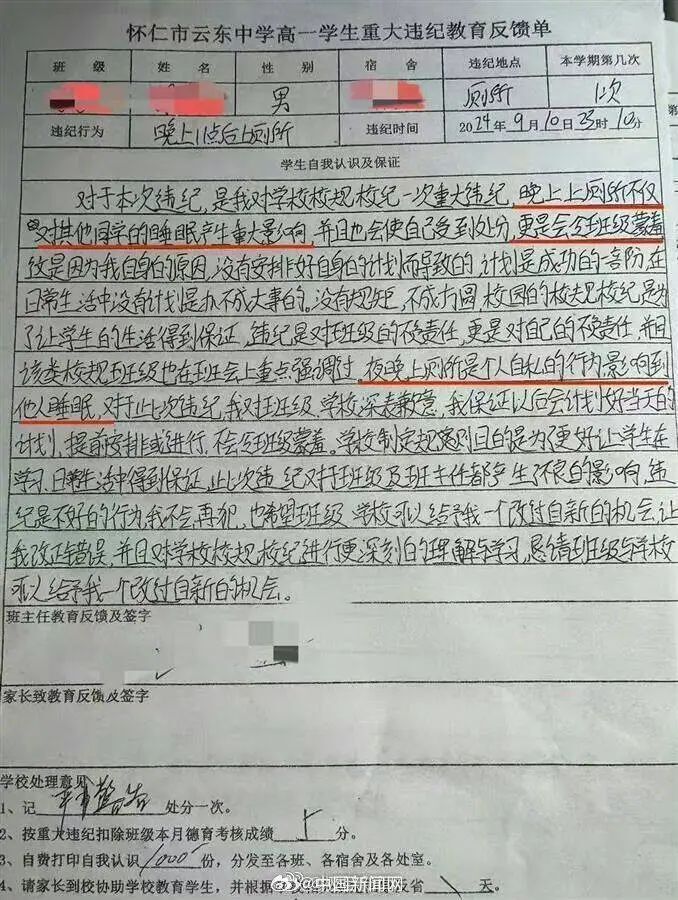 怀仁市云东中学高一学生重大违纪教育反馈单
班 级 姓 名 性 别 宿 舍 违纪地点 本学期第几次
男 厕所 1次
违纪行为 晚上11点后上厕所 违纪时间 2024年9月10日23时10分
学生自我认识及保证
对于本次违纪，是我对学校校规校纪一次重大违纪，晚上上厕所不仅
对其他同学的睡眠产生重大影响，并且也会使自己受到处分，更是会令班级蒙羞
这是因为我自身的原因，没有安排好自身的计划而导致的，计划是成功的一部阶，在
日常生活中没有计划是办不成大事的。没有规矩，不成方圆，校园的校规校纪，是为
了让学生的生活得到保证，违纪是对班级的不负责任，更是对自己的不负责任，并且
该类校规班级也在班会上重点强调过，夜晚上厕所是个人自私的行为影响到
他人睡眠，对于此次违纪，我对班级、学校深表歉意，我保证以后会计划好当天的
计划，提前安排或进行，不会令班级蒙羞。学校制定规章制目的是为了更好让学生在
学习、日常生活中得到保证，此次违纪对班级及班主任都产生了不良的影响，违
纪是不好的行为，我不会再犯，也希望班级、学校可以给予我一个改过自新的机会，让
我改正错误，并且对学校校规、校纪进行更深刻的理解与学习，恳请班级与学校
可以给予我一个改过自新的机会。
班主任教育反馈及签字
家长致教育反馈及签字
学校处理意见
1、记 严重警告 处分一次。
2、按重大违纪扣除班级本月德育考核成绩 5 分。
3、自费打印自我认识 1000 份，分发至各班、各宿舍及各处室。
4、请家长到校协助学校教育学生，并根据学 省 天。
@中国新闻网